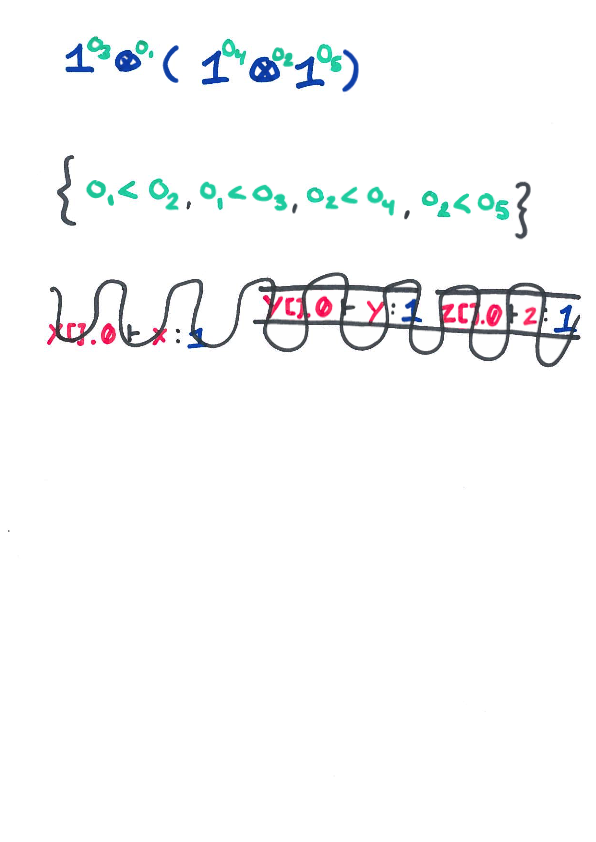 1^o₃ ⊗^o₁ ( 1^o₄ ⊗^o₂ 1^o₅ )
{ o₁ < o₂, o₁ < o₃, o₂ < o₄, o₂ < o₅ }
x[].0 ⊢ x : 1 y[].0 ⊢ y : 1 z[].0 ⊢ z : 1